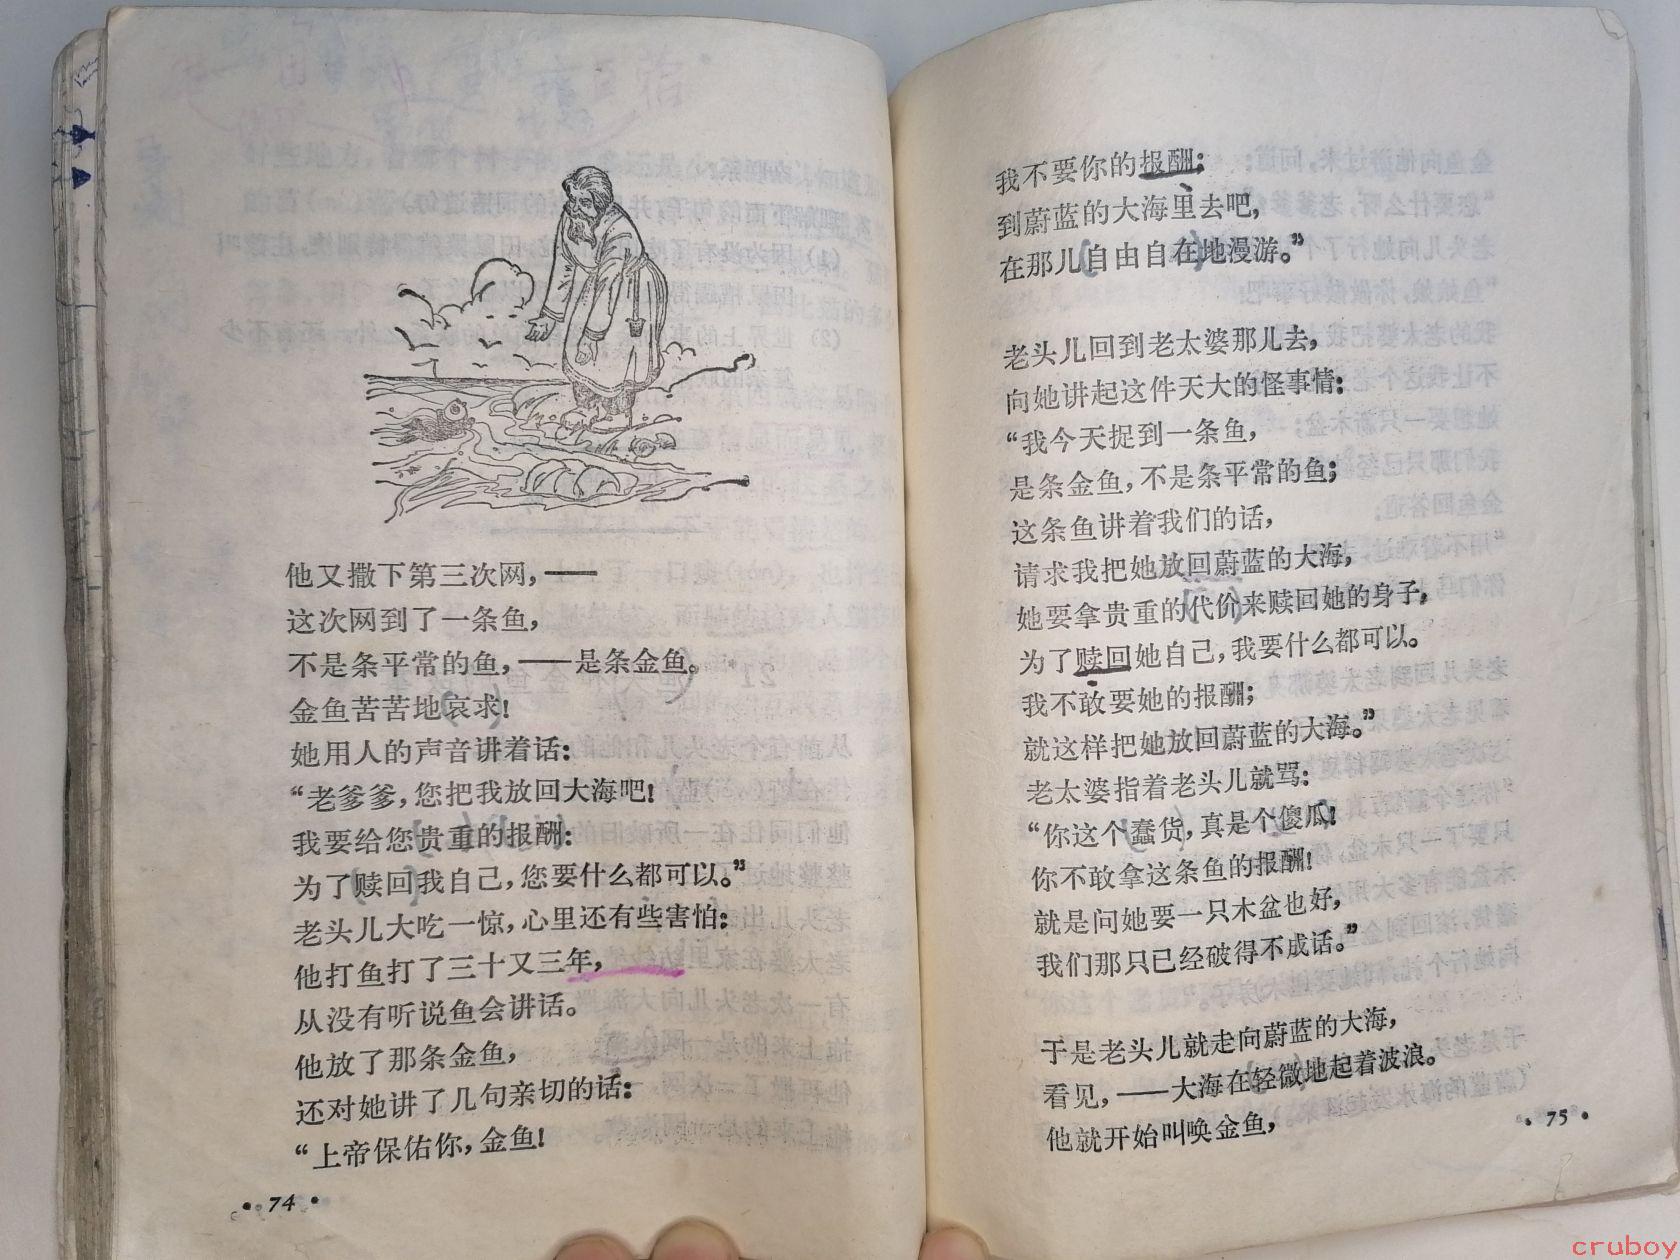 他又撒下第三次网，——
这次网到了一条鱼，
不是条平常的鱼，——是条金鱼。
金鱼苦苦地哀求！
她用人的声音讲着话：
“老爹爹，您把我放回大海吧！
我要给您贵重的报酬：
为了赎回我自己，您要什么都可以。”
老头儿大吃一惊，心里还有些害怕：
他打鱼打了三十又三年，
从没有听说鱼会讲话。
他放了那条金鱼，
还对她讲了几句亲切的话：
“上帝保佑你，金鱼！
• 74 •
我不要你的报酬；
到蔚蓝的大海里去吧，
在那儿自由自在地漫游。”
老头儿回到老太婆那儿去，
向她讲起这件天大的怪事情：
“我今天捉到一条鱼，
是条金鱼，不是条平常的鱼；
这条鱼讲着我们的话，
请求我把她放回蔚蓝的大海，
她要拿贵重的代价来赎回她的身子，
为了赎回她自己，我要什么都可以。
我不敢要她的报酬；
就这样把她放回蔚蓝的大海。”
老太婆指着老头儿就骂：
“你这个蠢货，真是个傻瓜！
你不敢拿这条鱼的报酬！
就是问她要一只木盆也好，
我们那只已经破得不成话。”
于是老头儿就走向蔚蓝的大海，
看见，——大海在轻微地起着波浪。
他就开始叫唤金鱼，
• 75 •
cruboy